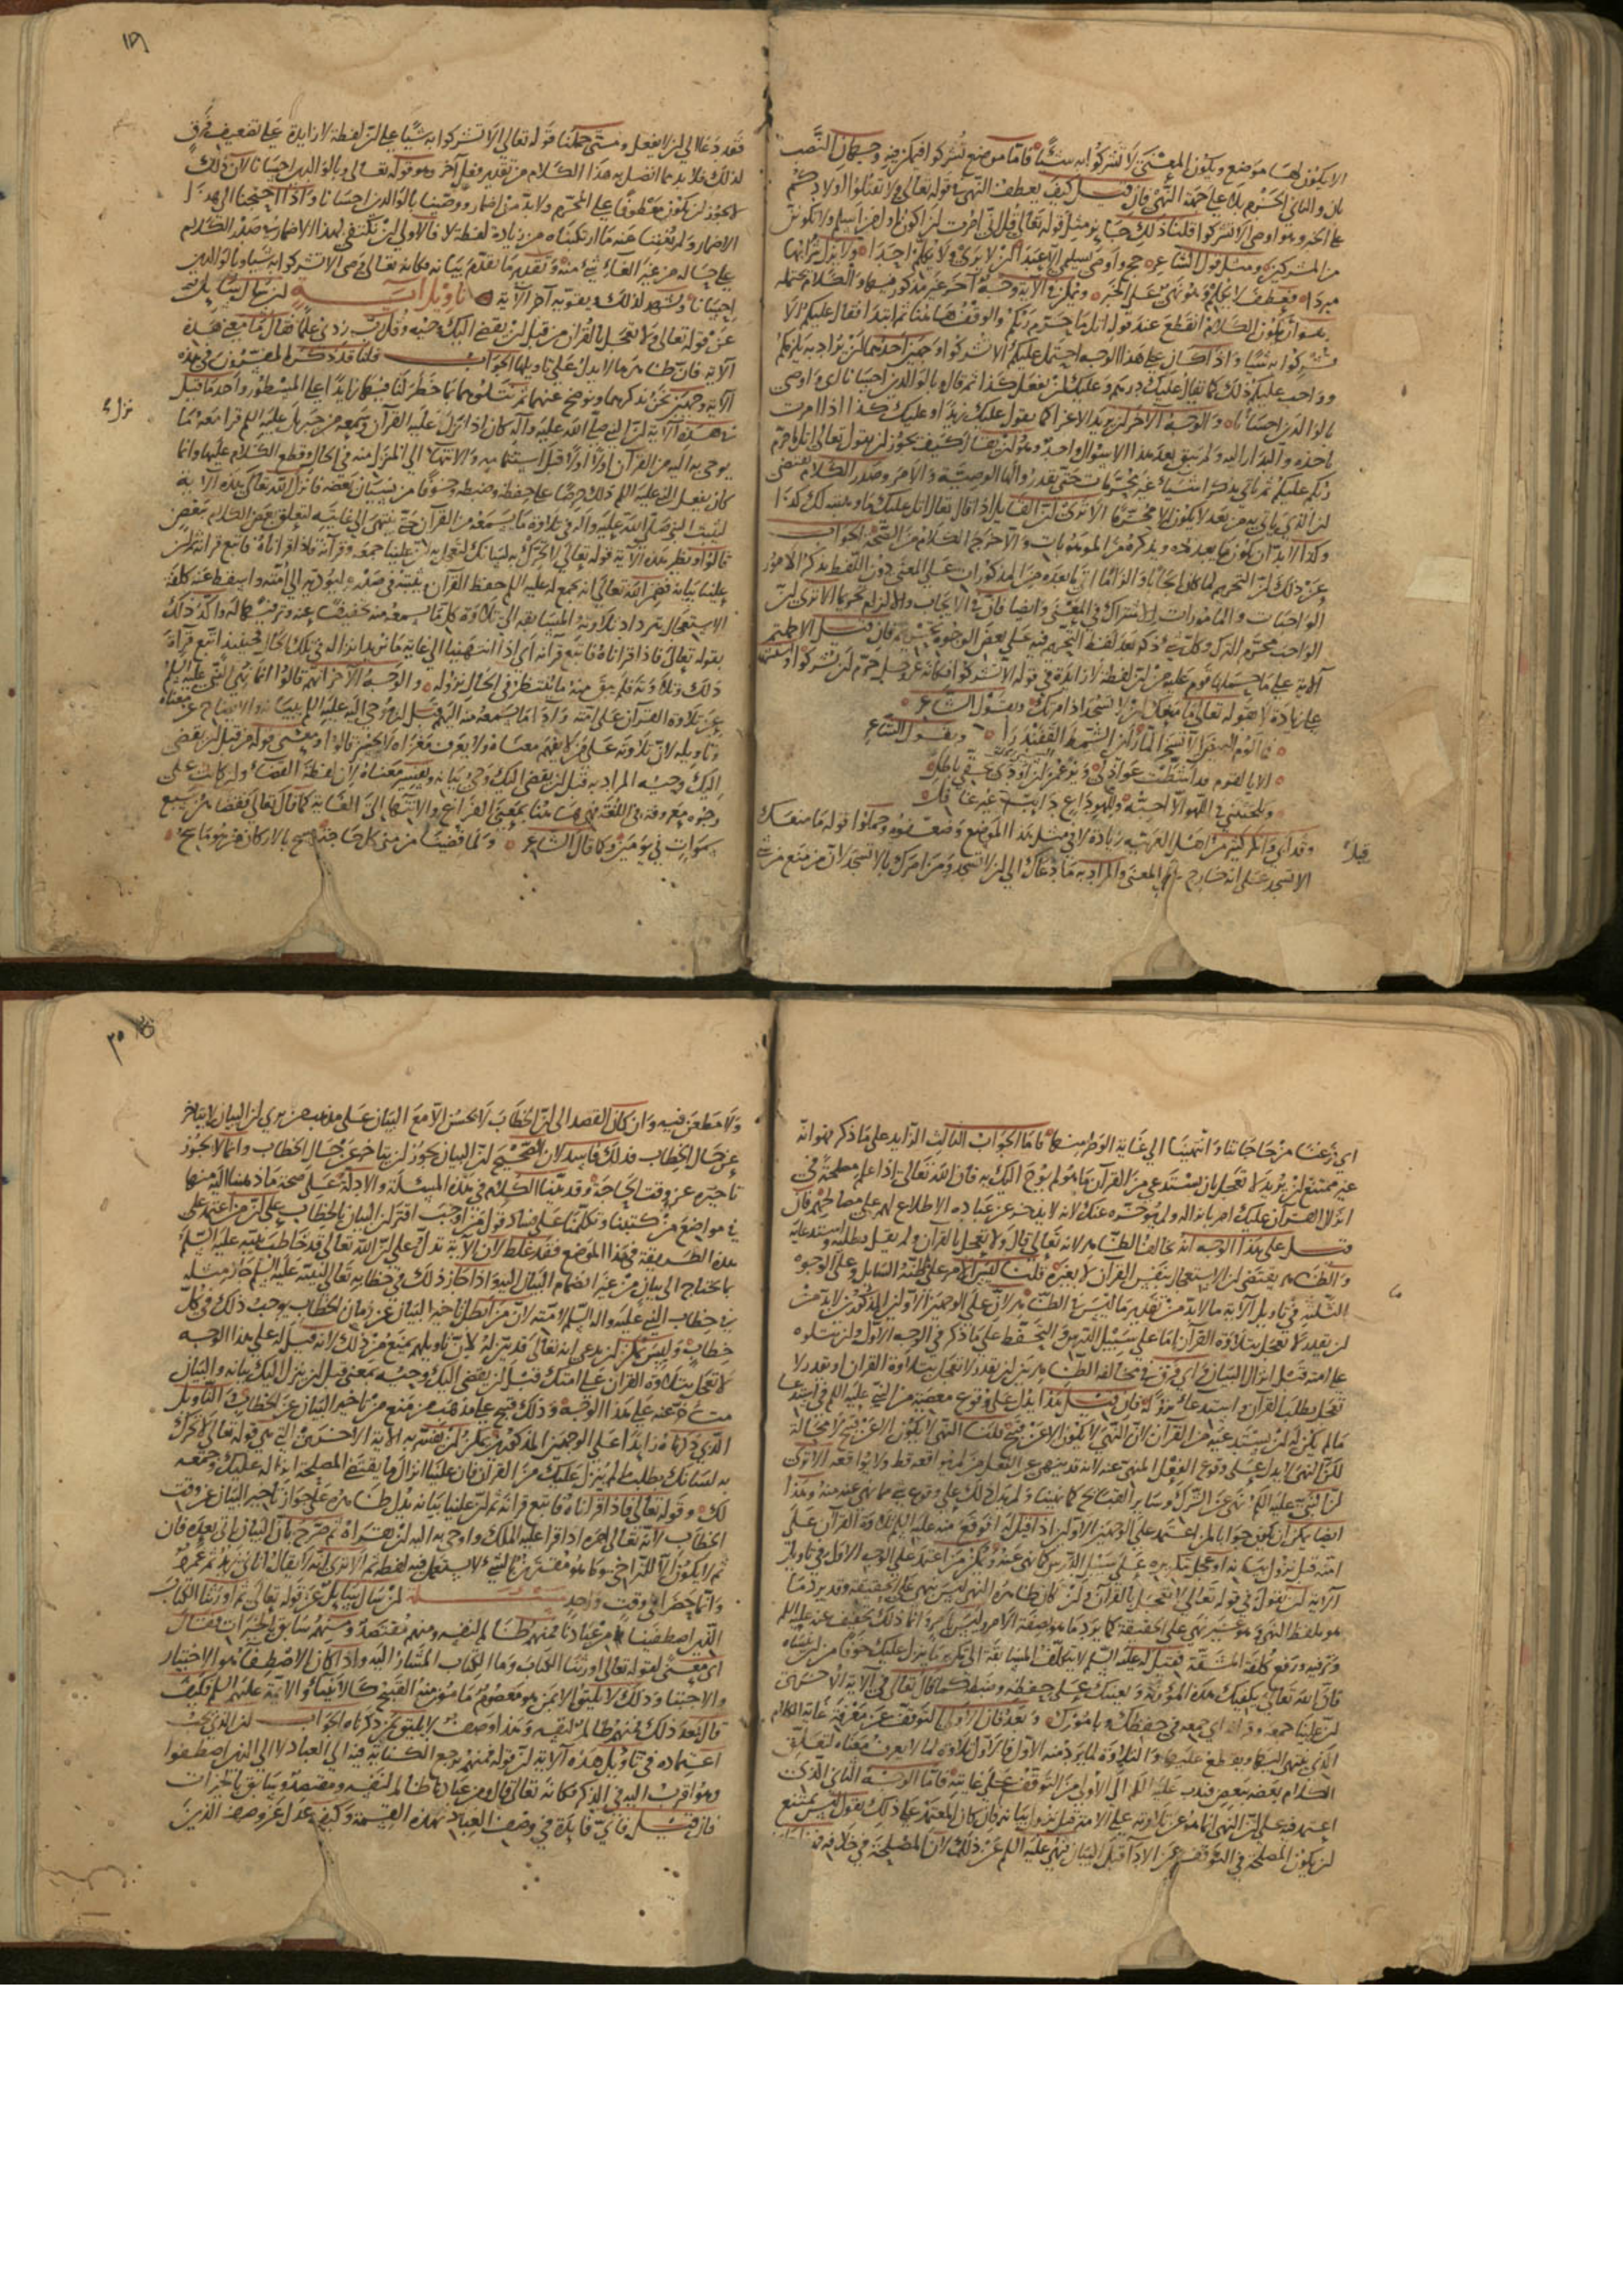 الا يكون لها موضع ويكون المعنى لا تشركوا به شيئا فاما موضع تشركوا فيمكن فيه وجهان النصب
بان والثاني الجزم بلا على جهة النهي فان قيل كيف يعطف النهي في قوله تعالى ولا تقتلوا اولادكم
على الخبر وهو اوصى الا تشركوا قلنا ذلك جايز مثل قوله تعالى قل اني امرت ان اكون اول من اسلم ولا تكونن
من المشركين ومثل قول الشاعر حج واوصى بسليمى الا عبدا ان لا ترى ولا تكلم احدا ولا يزل شرابها
مبردا فعطف لا تكلم وهو نهي على الخبر ويمكن في الآية وجه آخر غير مذكور فيها والكلام يحتمله
وهو ان يكون الكلام انقطع عند قوله اتل ما حرم ربكم والوقف هاهنا ثم ابتدا فقال عليكم الا
تشركوا به شيئا واذا كان على هذا الوجه احتمل عليكم الا تشركوا وجهين احدهما ان يراد به يلزمكم
وواجب عليكم ذلك كما يقال عليك درهم وعليك ان تفعل كذا ثم قال وبالوالدين احسانا اي واوصى
بالوالدين احسانا والوجه الآخر ان يريد الاغرا كما يقول عليك زيدا وعليك كذا اذا امرت
باخذه والبدار اليه ولم يبق بعد هذا الا سؤال واحد وهو ان يقال كيف يجوز ان يقول تعالى اتل ما حرم
ربكم عليكم ثم ياتي بذكر اشياء غير محرمات حتى يقدروا لها الوصية والامر وصدر الكلام يقتضي
ان الذي ياتي به من بعد لا يكون الا محرما الا ترى ان القايل اذا قال اتل عليك ما وهبته لك كذا
وكذا لا بد ان يكون ما يعدده ويذكره من الموهوبات والا خرج الكلام من الصحة الجواب
عن ذلك ان التحريم لما كان ايجابا والزاما اتى ما بعده من المذكورات على المعنى دون اللفظ بذكر الامور
الواجبات والمامورات للاشتراك في المعنى وايضا فان في الايجاب والالزام تحريما الا ترى ان
الواجب محرم الترك وكل شيء ذكر بعد لفظ التحريم فيه على بعض الوجوه تحريم فان قيل الا حملتم
الآية على ما حملها قوم عليه من ان لفظة لا زايدة في قوله الا تشركوا فكانه عز وجل حرم ان تشركوا
على زيادة لا بقوله تعالى ما منعك ان لا تسجد اذ امرتك وبقول الشاعر
فما الوم البيض الا تسخرا لما راين الشمط القفندرا وبقول الشاعر
الا يا لقوم قد اشطت عواذلي ويزعمن ان اودى بحقي باطلي
ويلحينني في اللهو الا احبه وللهو داع دايب غير غافل
وقد ابي ذاك كثير من اهل العربية زيادة لا في مثل هذا الموضع وضعفوه وحملوا قوله ما منعك
الا تسجد على انه خارج على المعنى والمراد به ما دعاك الى ان لا تسجد ومن امرك بالا تسجد لان من منع من شيء
فقد دعا الى ان لا يفعل ومتى حملنا قوله تعالى الا تشركوا به شيئا على ان لفظة لا زايدة على تضعيف قوم
لذلك فلا بد مما اتصل به هذا الكلام من تقدير فعل آخر وهو قوله تعالى وبالوالدين احسانا لان ذلك
لا يجوز ان يكون معطوفا على المحرم ولا بد من اضمار ووصينا بالوالدين احسانا واذا احتجنا الى هذا
الاضمار ولم يغننا عنه ما ارتكبناه من زيادة لفظة لا فالاولى ان نكتفي بهذا الاضمار في صدر الكلام
على حاله من غير الغاء شيء منه ونقدر ما تقدم بيانه فكانه تعالى وصى الا تشركوا به شيئا وبالوالدين
احسانا ويشهد لذلك ويقويه آخر الآية تاويل آية ان سال سايل
عن قوله تعالى ولا تعجل بالقرآن من قبل ان يقضى اليك وحيه وقل رب زدني علما فقال ما معنى هذه
الآية فان ظاهرها لا يدل على تاويلها الجواب قلنا قد ذكر المفسرون في هذه
الآية وجهين نحن نذكرهما ونوضح عنهما ثم نتلوهما بما خطر لنا فيها زايدا على المسطور واحد ما قيل
في هذه الآية ان النبي صلى الله عليه وآله كان اذا نزل عليه القرآن وسمعه من جبريل عليه السلم قرا معه ما
يوحى به اليه من القرآن اولا اولا قبل استتمامه والانتهاء الى المنزل منه في الحال وقطع الكلام عليها وانما
كان يفعل النبي عليه السلم ذلك حرصا على حفظه وضبطه وخوفا من نسيان بعضه فانزل الله تعالى هذه الآية
ليثبت النبي صلى الله عليه وآله في تلاوة ما يسمعه من القرآن حتى ينتهي الى غايته لتعلق بعض الكلام ببعض
قالوا ونظير هذه الآية قوله تعالى لا تحرك به لسانك لتعجل به ان علينا جمعه وقرآنه فاذا قراناه فاتبع قرآنه ثم ان
علينا بيانه فضمن الله تعالى انه يجمع له عليه السلم حفظ القرآن ويثبته في صدره ليؤديه الى امته واسقط عنه كلفة
الاستعجال بترداد تلاوته والمسابقة الى تلاوة كل ما يسمعه منه تخفيفا عنه وترفيها له واكد ذلك
بقوله تعالى فاذا قراناه فاتبع قرآنه اي اذا انتهينا الى غاية ما نريد انزاله في تلك الحال فحينئذ اتبع قرآة
ذلك وتلاوته فلم يبق منه ما ينتظر في الحال نزوله والوجه الآخر انهم قالوا انما نهي النبي عليه السلم
عن تلاوة القرآن على امته واداء ما يسمعه منه اليهم قبل ان يوحى اليه عليه السلم ببيانه والايضاح عن معناه
وتاويله لان تلاوته على من لا يفهم معناه ولا يعرف مغزاه لا يحسن قالوا ومعنى قوله من قبل ان يقضى
اليك وحيه المراد به قبل ان يقضى اليك وحي بيانه وتفسير معناه لان لفظة القضاء وان كانت على
وجوه معروفة في اللغة فهي هاهنا بمعنى الفراغ والانتهاء الى الغاية كما قال تعالى فقضاهن سبع
سموات في يومين وكما قال الشاعر ولما قضينا من منى كل حاجة ومسح بالاركان من هو ماسح
اي فرغنا من حاجاتنا وانتهينا الى غاية الوطر منها فاما الجواب الثالث الزايد على ما ذكر فهو انه
غير ممتنع ان يريد لا تعجل بان تستدعي من القرآن ما لم يوح اليك به فان الله تعالى اذا علم مصلحة في
انزال القرآن عليك امر بانزاله ولم يؤخره عنك لانه لا يدخر عن عباده الاطلاع لهم على مصالحهم فان
قيل على هذا الوجه انه يخالف الظاهر لانه تعالى قال ولا تعجل بالقرآن ولم يقل بطلبه واستدعائه
والظاهر يقتضي ان الاستعجال بنفس القرآن لا بغيره قلنا ليس الامر على ما ظنه السايل وعلى الوجوه
الثلثة في تاويل الآية لا بد من تقدير ما ليس في الظاهر لان على الوجهين الاولين المذكورين لا بد من
ان يقدر لا تعجل بتلاوة القرآن اما على سبيل الدرس والتحفظ على ما ذكر في الوجه الاول وان يتلوه
على امته قبل انزال البيان واي فرق في مخالفة الظاهر بين ان يقدر لا تعجل بتلاوة القرآن او يقدر لا
تعجل بطلب القرآن واستدعاء نزوله فان قيل هذا يدل على وقوع معصية من النبي عليه السلم في استدعاء
ما لم يكن له ان يستدعيه من القرآن لان النهي لا يكون الا عن قبيح قلنا النهي لا يكون الا عن قبيح لا محالة
لكن النهي لا يدل على وقوع الفعل المنهي عنه لانه قد ينهى عن الفعل من لم يواقعه قط ولا يواقعه الا ترى
ان النبي عليه السلم نهي عن الشرك وساير القبايح كما نهينا ولم يدل ذلك على وقوع شيء مما نهي عنه منه وهذا
ايضا يمكن ان يكون جوابا لمن اعتمد على الوجهين الاولين اذا قيل له افوقع منه عليه السلم تلاوة القرآن على
امته قبل نزول بيانه او عجل بتكريره على سبيل الدرس كما نهي عنه ويمكن من اعتمد على الوجه الاول في تاويل
الآية ان يقول في قوله تعالى لا تعجل بالقرآن وان كان ظاهره النهي ليس بنهي على الحقيقة وقد يرد ما
هو بلفظ النهي وهو غير نهي على الحقيقة كما يرد ما هو بصفة الامر وليس بامر وانما ذلك تخفيف عنه عليه السلم
وترفيه ورفع كلفة المشقة فقيل له عليه السلم لا تتكلف المسابقة الى تكرير ما ينزل عليك خوفا من ان تنساه
فان الله تعالى يكفيك هذه المؤونة ويعينك على حفظه وضبطه كما قال تعالى في الآية الاخرى
ان علينا جمعه وقرآنه اي جمعه في حفظك وتامورك وبعد فان الاولى التوقف عن معرفة غاية الكلام
الذي ينتهي اليها ويقطع عليها والتلاوة لما يرد منه الاول فالاول تلاوة لما لا يعرف معناه لتعلق
الكلام بعضه ببعض فندب عليه السلم الى الاولى من التوقف على غايته فاما الوجه الثاني الذي
اعتمد فيه على ان النهي انما هو عن تلاوته على الامة قبل نزول بيانه فان كان المعتمد على ذلك يقول ليس يمتنع
ان يكون المصلحة في التوقف عن الاداء قبل البيان فنهي عليه السلم عن ذلك لان المصلحة في خلافه فهذا جايز
ولا مطعن فيه وان كان القصد الى ان الخطاب لا يحسن الا مع البيان على مذهب من يرى ان البيان لا يتاخر
عن حال الخطاب فذلك فاسد لان الصحيح ان البيان يجوز ان يتاخر عن حال الخطاب وانما لا يجوز
تاخيره عن وقت الحاجة وقد بينا الكلام في هذه المسئلة والادلة على صحة ما ذهبنا اليه منها
في مواضع من كتبنا وتكلمنا على فساد قول من اوجب اقتران البيان بالخطاب على ان من اعتمد على
هذه الطريقة في هذا الموضع فقد غلط لان الآية تدل على ان الله تعالى قد خاطب نبيه عليه السلم
بما يحتاج الى بيان من غير انضمام البيان اليه واذا جاز ذلك في خطابه تعالى لنبيه عليه السلم جاز مثله
في خطاب النبي عليه وآله السلم لامته لان من ابطل تاخير البيان عن زمان الخطاب يوجب ذلك في كل
خطاب وليس يمكن ان يدعى انه تعالى قد بين له لان تاويلهم يمنع من ذلك لانه قيل له على هذا الوجه
لا تعجل بتلاوة القرآن على امتك قبل ان يقضى اليك وحيه بمعنى قبل ان ينزل اليك بيانه والبيان
متاخر عنه على هذا الوجه وذلك قبيح على مذهب من منع من تاخير البيان عن الخطاب والتاويل
الذي ذكرناه زايدا على الوجهين المذكورين يمكن ان تفسر به الآية الاخرى التي هي قوله تعالى لا تحرك
به لسانك بطلب ما لم ينزل عليك من القرآن فان علينا انزال ما يقتضي المصلحة انزاله عليك وجمعه
لك وقوله تعالى فاذا قراناه فاتبع قرآنه ثم ان علينا بيانه يدل ظاهره على جواز تاخير البيان عن وقت
الخطاب لانه تعالى امره اذا قرا عليه الملك واوحى به اليه ان يقراه ثم صرح بان البيان ياتي بعده فان
ثم لا يكون الا للتراخي وما هو مقترن بالشيء لا يستعمل فيه لفظة ثم الا ترى انه لا يقال اتاني زيد ثم عمرو
وانما حضرا في وقت واحد مسئلة ان سال سايل عن قوله تعالى ثم اورثنا الكتاب
الذين اصطفينا من عبادنا فمنهم ظالم لنفسه ومنهم مقتصد ومنهم سابق بالخيرات فقال
اي معنى لقوله تعالى اورثنا الكتاب وما الكتاب المشار اليه واذا كان الاصطفا هو الاختيار
والاجتبا وذلك لا يليق الا بمن هو معصوم مامون منه القبيح كالانبياء والائمة عليهم السلم فكيف
قال بعد ذلك فمنهم ظالم لنفسه وهذا وصف لا يليق بمن ذكرناه الجواب ان الذي يجب
اعتماده في تاويل هذه الآية ان قوله فمنهم يرجع الكناية فيه الى العباد لا الى الذين اصطفوا
وهو اقرب اليه في الذكر فكانه تعالى قال ومن عبادنا ظالم لنفسه ومقتصد وسابق بالخيرات
فان قيل فاي فايدة في وصف العباد بهذه القسمة وكيف عدل عن وصف الذين